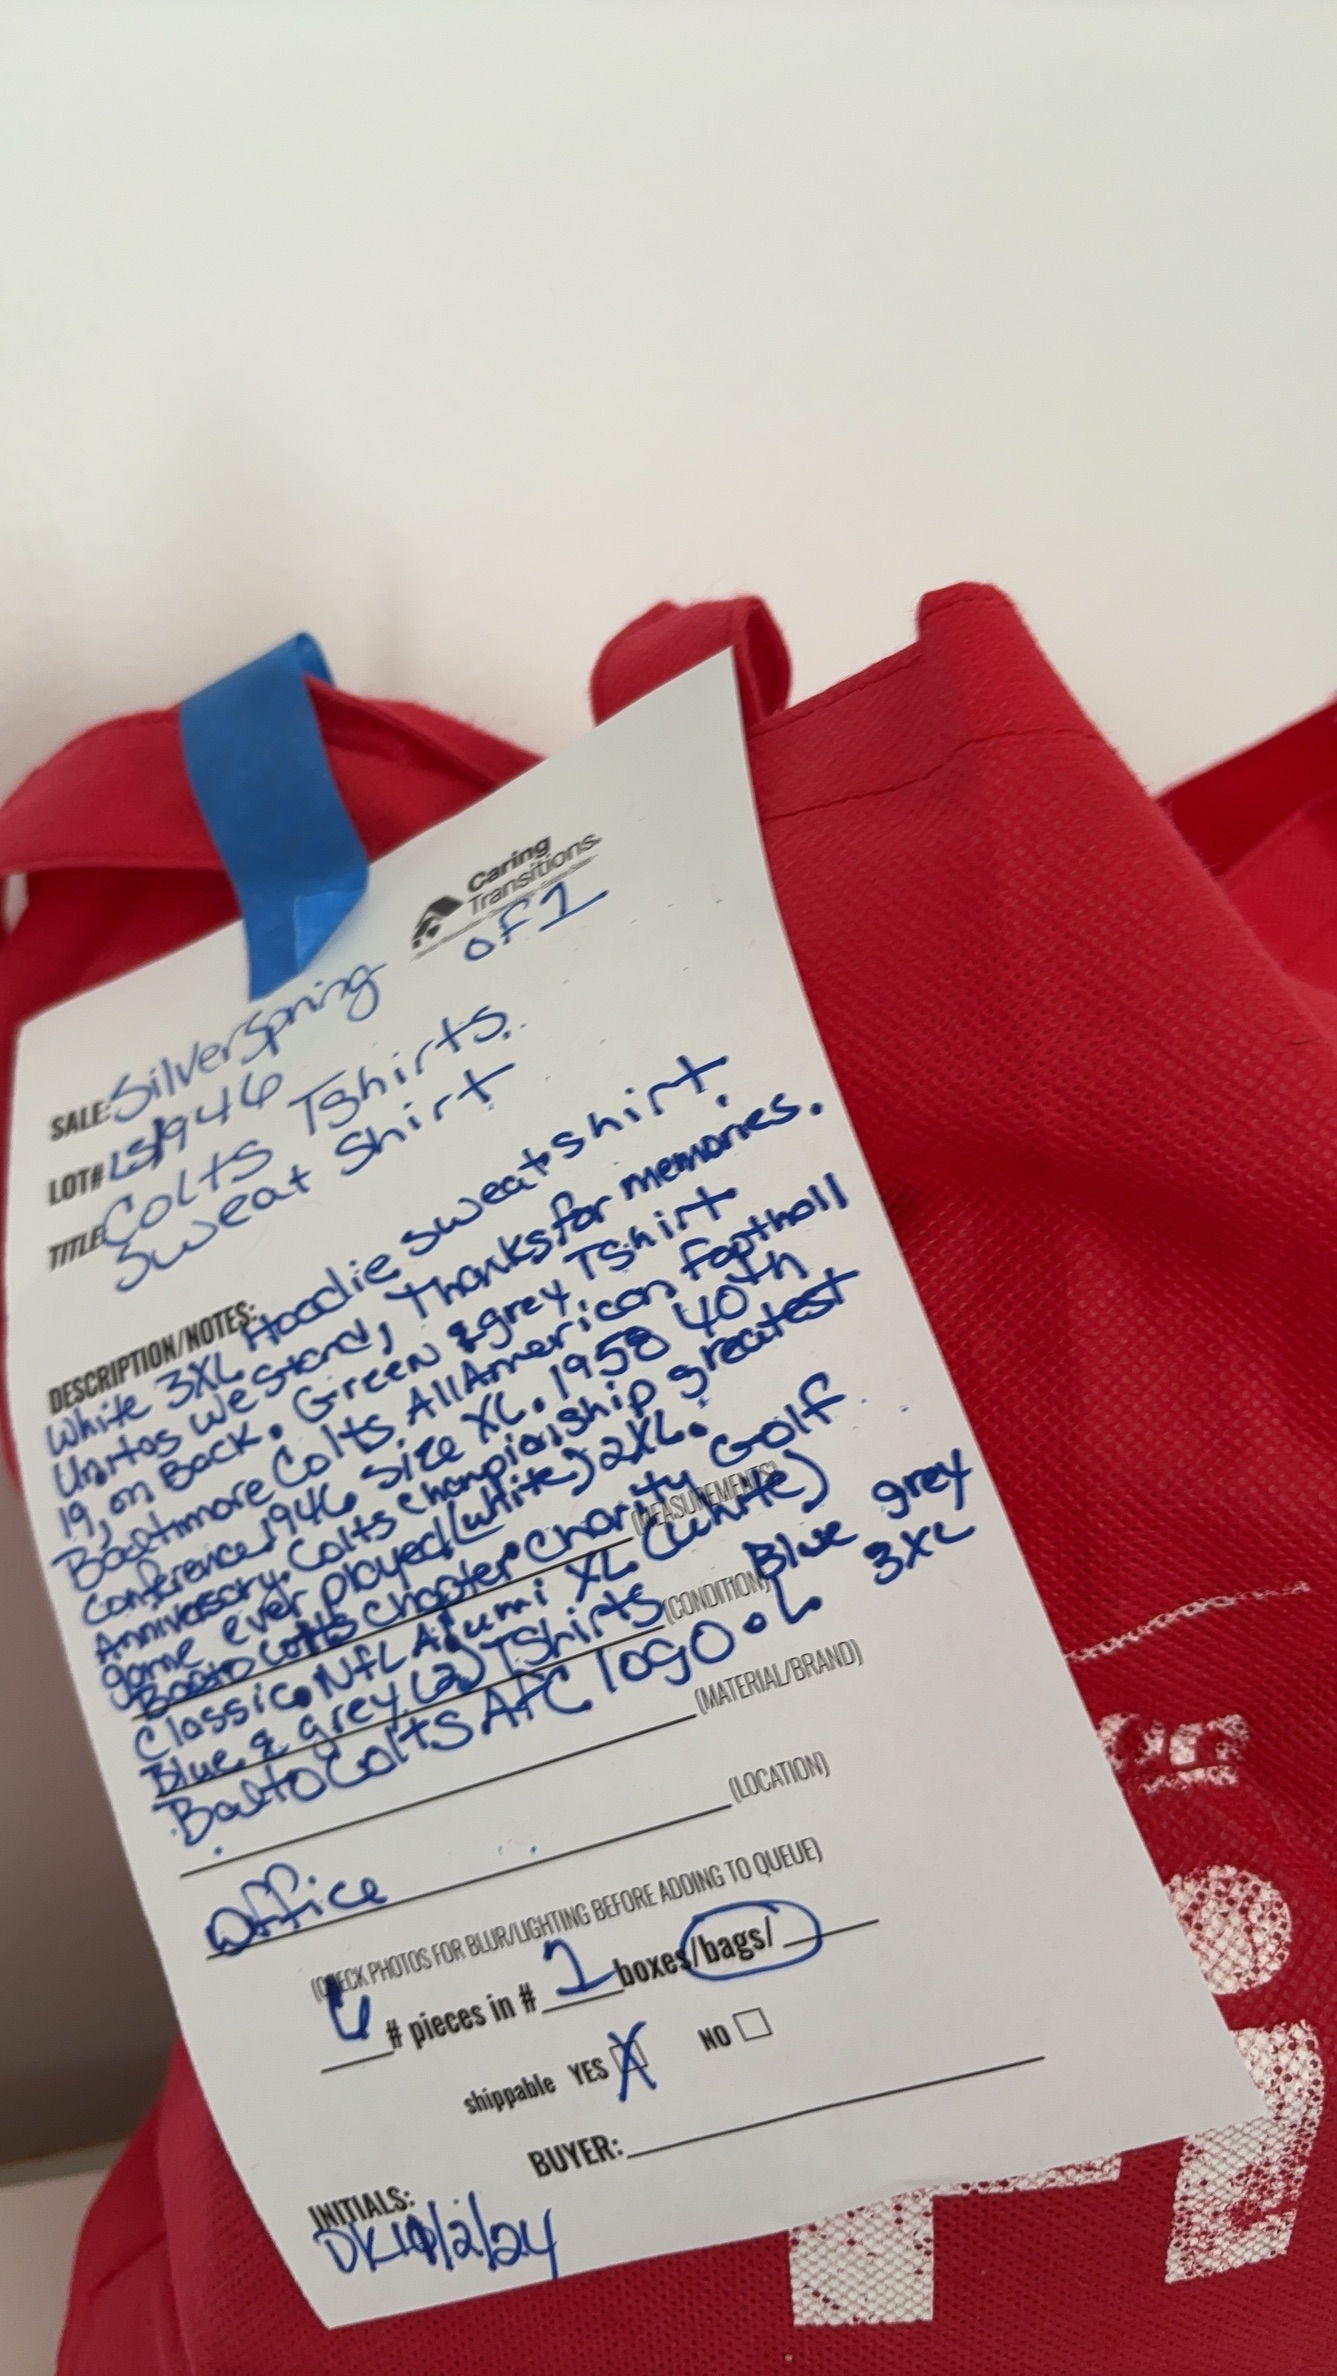 Caring
Transitions
SALE: Silver Spring of 1
LOT# LS1946
TITLE: Colts Tshirts.
Sweat Shirt
DESCRIPTION/NOTES:
White 3XL Hoodie sweatshirt.
Unitas We stand, Thanks for memories.
19, on Back. Green & grey Tshirt
Baltimore Colts All American football
Conference, 1946 size XL. 1958 40th
Anniversary. Colts Championship greatest
game ever played (white) 2XL.
Balto Colts Chapter Charity Golf
(MEASUREMENTS)
Classic. NFL Alumi XL (white)
Blue & grey (2) TShirts Blue grey
(CONDITION)
Balto Colts AFC logo. L 3XL
(MATERIAL/BRAND)
(LOCATION)
Office
(CHECK PHOTOS FOR BLUR/LIGHTING BEFORE ADDING TO QUEUE)
# pieces in # 1 boxes/bags/
shippable YES X NO
BUYER:
INITIALS:
DK 10/2/24